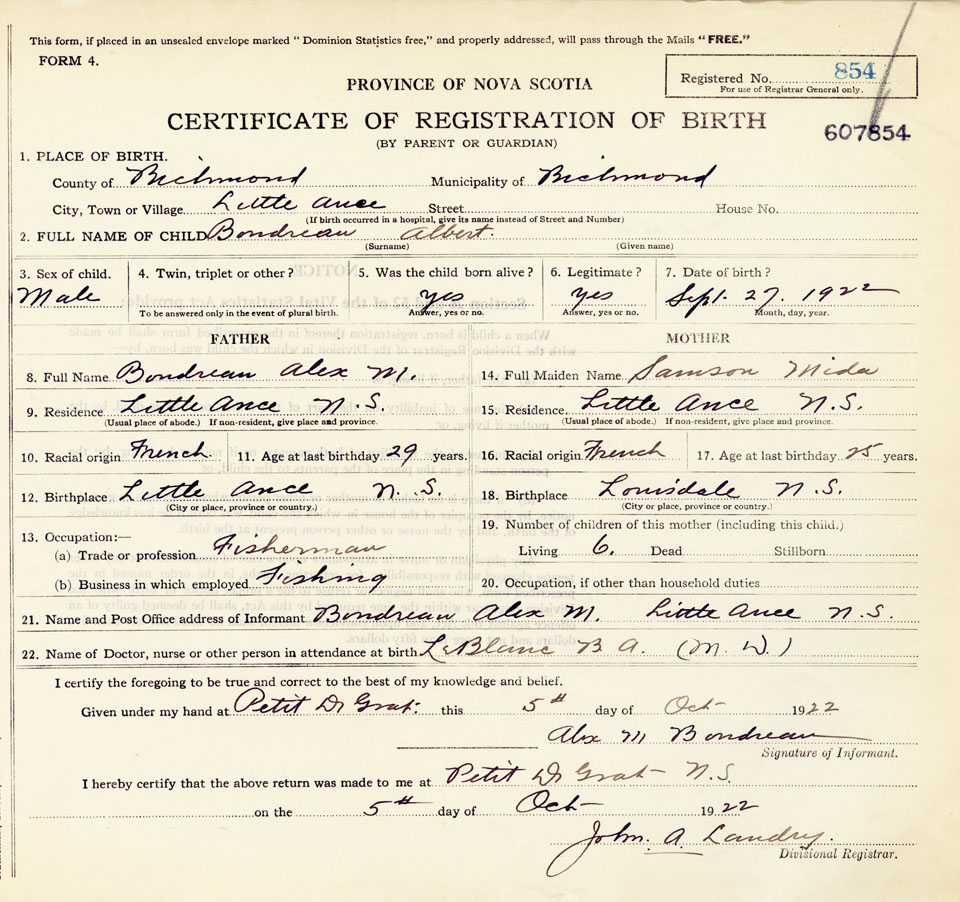 This form, if placed in an unsealed envelope marked "Dominion Statistics free," and properly addressed, will pass through the Mails "FREE."
FORM 4.
Registered No. 854
For use of Registrar General only.
PROVINCE OF NOVA SCOTIA
CERTIFICATE OF REGISTRATION OF BIRTH
607854
(BY PARENT OR GUARDIAN)
1. PLACE OF BIRTH.
County of Richmond Municipality of Richmond
City, Town or Village Little Ance Street House No.
(If birth occurred in a hospital, give its name instead of Street and Number)
2. FULL NAME OF CHILD Boudreau Albert.
(Surname) (Given name)
3. Sex of child. 4. Twin, triplet or other? 5. Was the child born alive? 6. Legitimate? 7. Date of birth?
Male yes yes Sept. 27. 1922
To be answered only in the event of plural birth. Answer, yes or no. Answer, yes or no. Month, day, year.
FATHER MOTHER
8. Full Name Boudreau Alex M. 14. Full Maiden Name Samson Mida
9. Residence Little Ance N.S. 15. Residence Little Ance N.S.
(Usual place of abode.) If non-resident, give place and province. (Usual place of abode.) If non-resident, give place and province.
10. Racial origin French 11. Age at last birthday 29 years. 16. Racial origin French 17. Age at last birthday 25 years.
12. Birthplace Little Ance N.S. 18. Birthplace Louisdale N.S.
(City or place, province or country.) (City or place, province or country.)
13. Occupation:— 19. Number of children of this mother (including this child.)
(a) Trade or profession Fisherman Living 6. Dead Stillborn
(b) Business in which employed Fishing 20. Occupation, if other than household duties
21. Name and Post Office address of Informant Boudreau Alex M. Little Ance N.S.
22. Name of Doctor, nurse or other person in attendance at birth LeBlanc B A. (M. D.)
I certify the foregoing to be true and correct to the best of my knowledge and belief.
Given under my hand at Petit De Grat. this 5th day of Oct 1922
Alex M Boudreau
Signature of Informant.
I hereby certify that the above return was made to me at Petit De Grat N.S.
on the 5th day of Oct 1922
John. A Landry.
Divisional Registrar.